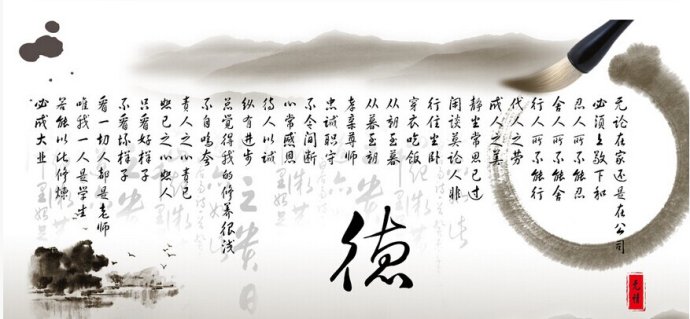 无论在家还是在公司
必须上敬下和
忍人所不能忍
舍人所不能舍
行人所不能行
代人之劳
成人之美
静坐常思己过
闲谈莫论人非
行住坐卧
穿衣吃饭
从朝至暮
从暮至朝
孝亲尊师
忠诚职守
不令间断
心常感恩
待人以诚
纵有进步
总觉得我的修养很浅
不自鸣夸
责人之心责己
恕己之心恕人
只看好样子
不看坏样子
看一切人都是老师
唯我一人是学生
若能以此修炼
必成大业
德